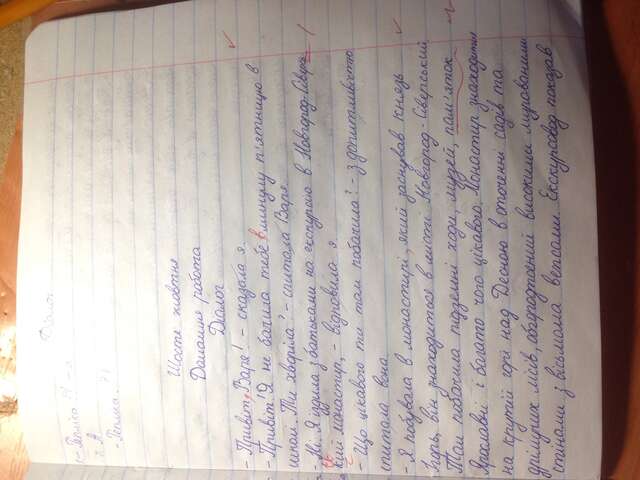 Діалог
- Репліка
2. А
- Репліка.
Шосте жовтня
Домашня робота
Діалог
- Привіт, Варя! - сказала я.
- Привіт! Я не бачила тебе в минулу п'ятницю в
школі. Ти хворіла? - спитала Варя.
- Ні. Я їздила з батьками на екскурсію в Новгород-Сіверсь
кий монастир, - відповила я.
- Що цікавого ти там побачила? - з допитливістю
спитала вона.
- Я побувала в монастирі, який заснував князь
Ігорь, він знаходиться в місті Новгород-Сіверський.
Там побачила підземні ходи, музей, пам'яток
Ярославні і багато чого цікавого. Монастир знаходиться
на крутій горі над Десною в оточенні садів та
дрімучих лісів, обгороджений високими мурованими
стінами з вісьмома вепсами. Екскурсовод показав